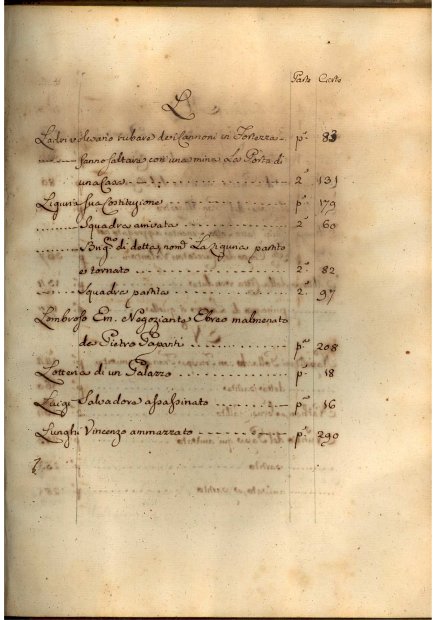 Parte Carte
L
Ladri volevano rubare de Cannoni in Fortezza - pª 83
fanno saltare con una mina la Porta di
una Casa 2ª 131
Liguria sua Costituzione pª 179
Squadra arrivata 2ª 60
Brigⁿᵒ di detta, nomᵗᵒ La Liguria partito
e tornato 2ª 82
Squadra partita 2ª 97
Lombroso Em. Negoziante Ebreo malmenato
da Pietro Paparti pª 208
Lotteria di un Palazzo pª 18
Luigi Salvadore assassinato pª 16
Lunghi Vincenzo ammazzato pª 290